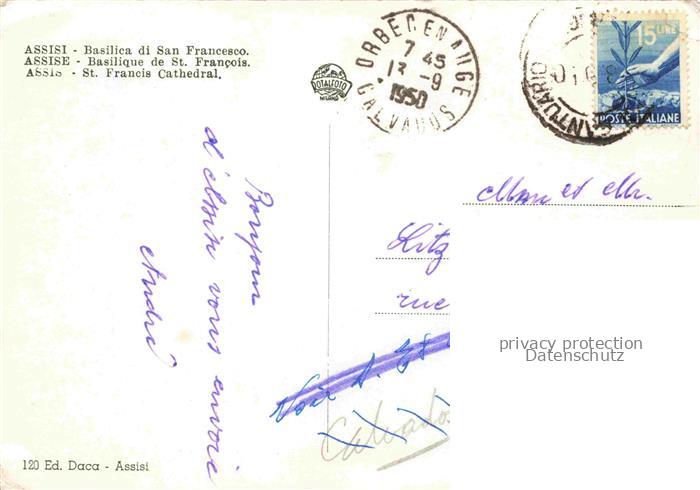 ASSISI - Basilica di San Francesco.
ASSISE - Basilique de St. François.
ASSIS - St. Francis Cathedral.
ORBEC EN AUGE
7 45
13 -9
1950
CALVADOS
ROTALFOTO
MILANO
SANTUARIO
15 LIRE
POSTE ITALIANE
Bonjour
vous envoie
André
et
Litz
rue
Calvados
privacy protection
Datenschutz
120 Ed. Daca - Assisi